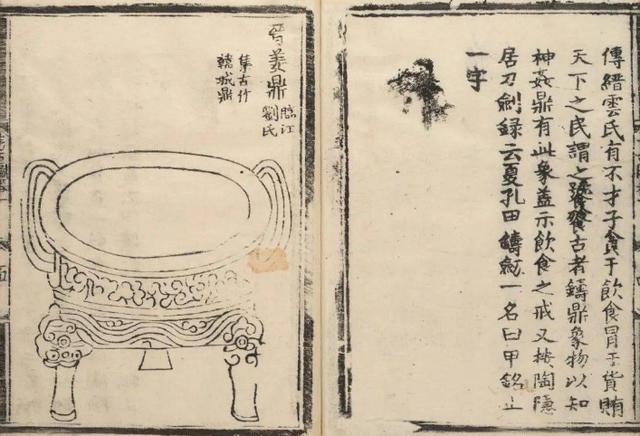 傳縉雲氏有不才子貪于飲食冒于貨賄
天下之民謂之饕餮古者鑄鼎象物以知
神姦鼎有此象蓋示飲食之戒又按陶隱
居刀劍録云夏孔田鑄一名曰甲銘止
一字
晉姜鼎
臨江
劉氏
集古作
韓城鼎